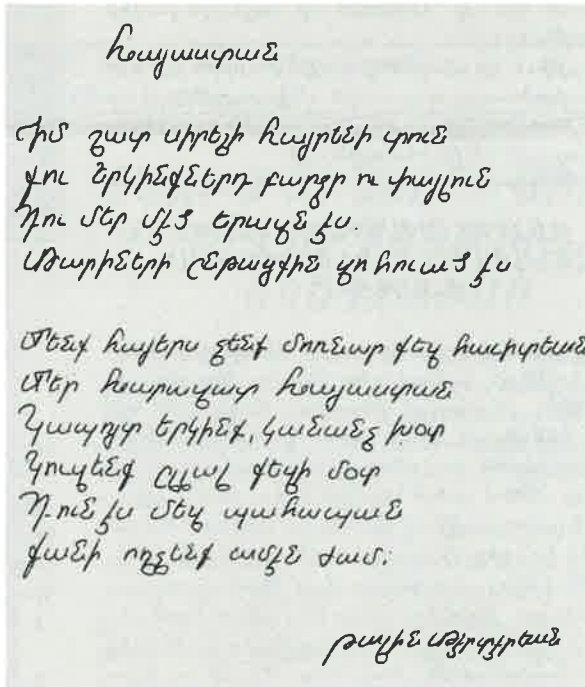 Հայաստան
Իմ շատ սիրելի հայրենի տուն
Քու երկինքներդ բարձր ու փայլուն
Դու մեր մէջ երազն ես.
Տարիների ընթացքին զոհուած ես
Մենք հայերս չենք մոռնար քեզ հաւիտեան
Մեր հարազատ Հայաստան
Կապոյտ երկինք, կանանչ խոտ
Կուզենք ըլլալ քեզի մօտ
Դուն ես մեզ պահապան
Քանի ողջ ենք ամէն ժամ:
Թալին